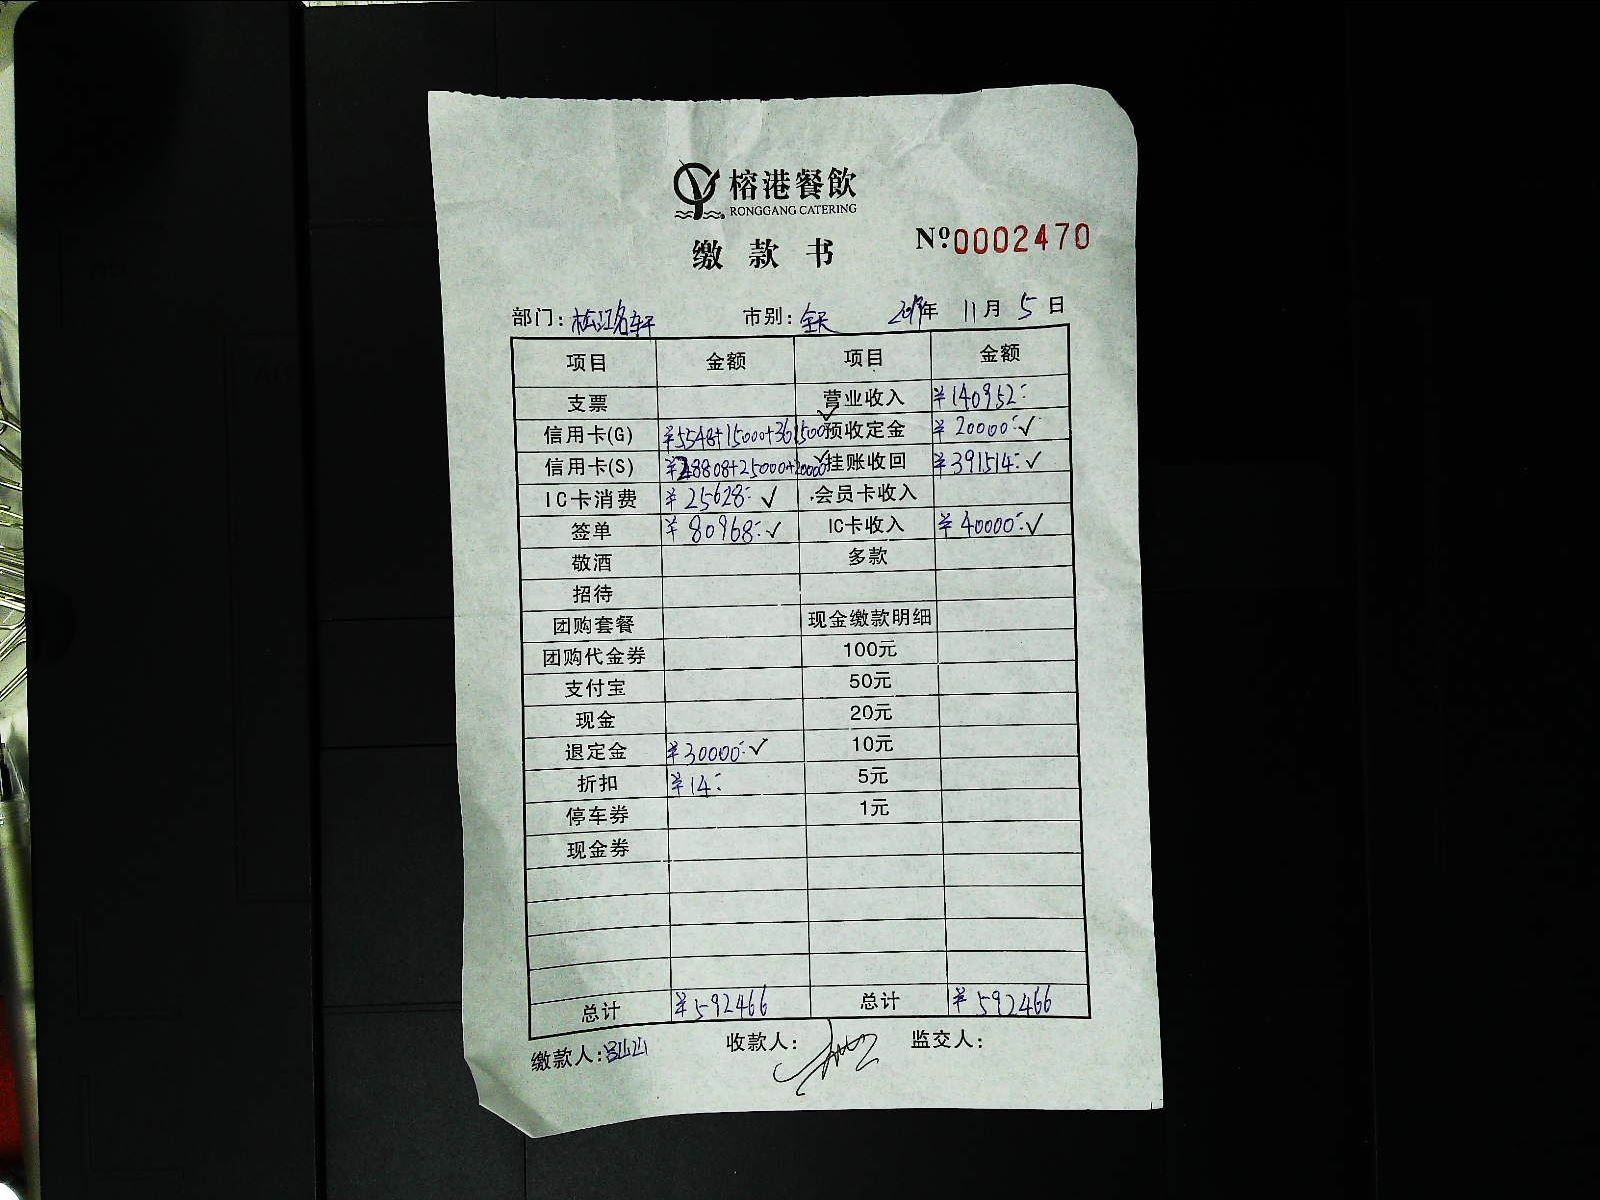 榕港餐飲
RONGGANG CATERING
缴款书
Nº0002470
部门：松江名轩 市别：全天 2019年 11月 5日
项目 金额 项目 金额
支票 营业收入 ¥140952:
信用卡(G) ¥5548+15000+361500 ✓ 预收定金 ¥20000: ✓
信用卡(S) ¥28808+25000+20000 ✓ 挂账收回 ¥391514: ✓
IC卡消费 ¥25628: ✓ 会员卡收入
签单 ¥80968: ✓ IC卡收入 ¥40000: ✓
敬酒 多款
招待
团购套餐 现金缴款明细
团购代金券 100元
支付宝 50元
现金 20元
退定金 ¥30000: ✓ 10元
折扣 ¥14: 5元
停车券 1元
现金券
总计 ¥592466 总计 ¥592466
缴款人：吕山山 收款人： 监交人：